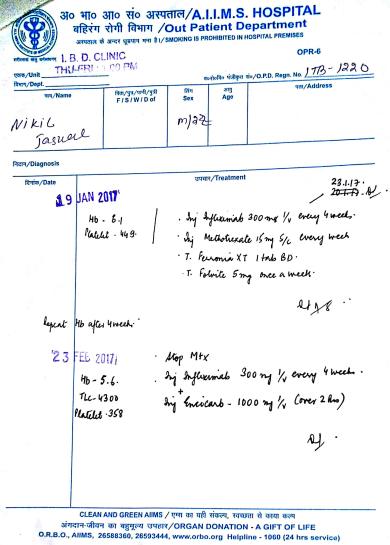 अ० भा० आ० सं० अस्पताल/A.I.I.M.S. HOSPITAL
बहिरंग रोगी विभाग /Out Patient Department
अस्पताल के अन्दर धूम्रपान मना है।/SMOKING IS PROHIBITED IN HOSPITAL PREMISES
OPR-6
I. B. D. CLINIC
एकक/Unit
विभाग/Dept.
O.P.D. Regn. No. ITB-1220
नाम/Name
F / S / W / D of
लिंग
Sex
आयु
Age
पता/Address
Nikil
Jaswal
M/22
निदान/Diagnosis
दिनांक/Date
उपचार/Treatment
23.1.17
19 JAN 2017
Hb - 6.1
Platelet - 449
Inj Infliximab 300 mg I/V every 4 weeks.
Inj Methotrexate 15 mg S/C every week
T. Ferronia XT 1 tab BD.
T. Folvite 5 mg once a week.
Repeat Hb after 4 weeks.
23 FEB 2017
Stop Mtx
Hb - 5.6.
Inj Infliximab 300 mg I/V every 4 weeks.
+
TLC - 4300
Inj Encicarb - 1000 mg I/V (over 2 hrs)
Platelet - 358
CLEAN AND GREEN AIIMS / एम्स का यही संकल्प, स्वच्छता से काया कल्प
अंगदान-जीवन का बहुमूल्य उपहार/ORGAN DONATION - A GIFT OF LIFE
O.R.B.O., AIIMS, 26588360, 26593444, www.orbo.org Helpline - 1060 (24 hrs service)